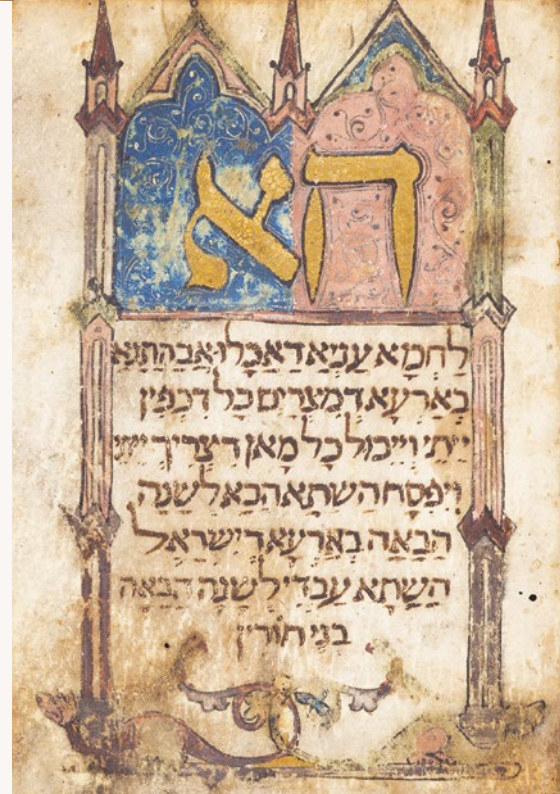 הא
לַחְמָא עַנְיָא דַאֲכָלוּ אֲבָהָתָנָא
בְאַרְעָא דְמִצְרַיִם כָל דִכְפִין
יֵיתֵי וְיֵיכוּל כָל מָאן דִצְרִיךְ ייתי
וְיִפְסַח הָשַׁתָּא הָכָא לְשָׁנָה
הַבָּאָה בְאַרְעָא דְיִשְׂרָאֵל
הָשַׁתָּא עַבְדֵי לְשָׁנָה הַבָּאָה
בְנֵי חוֹרִין